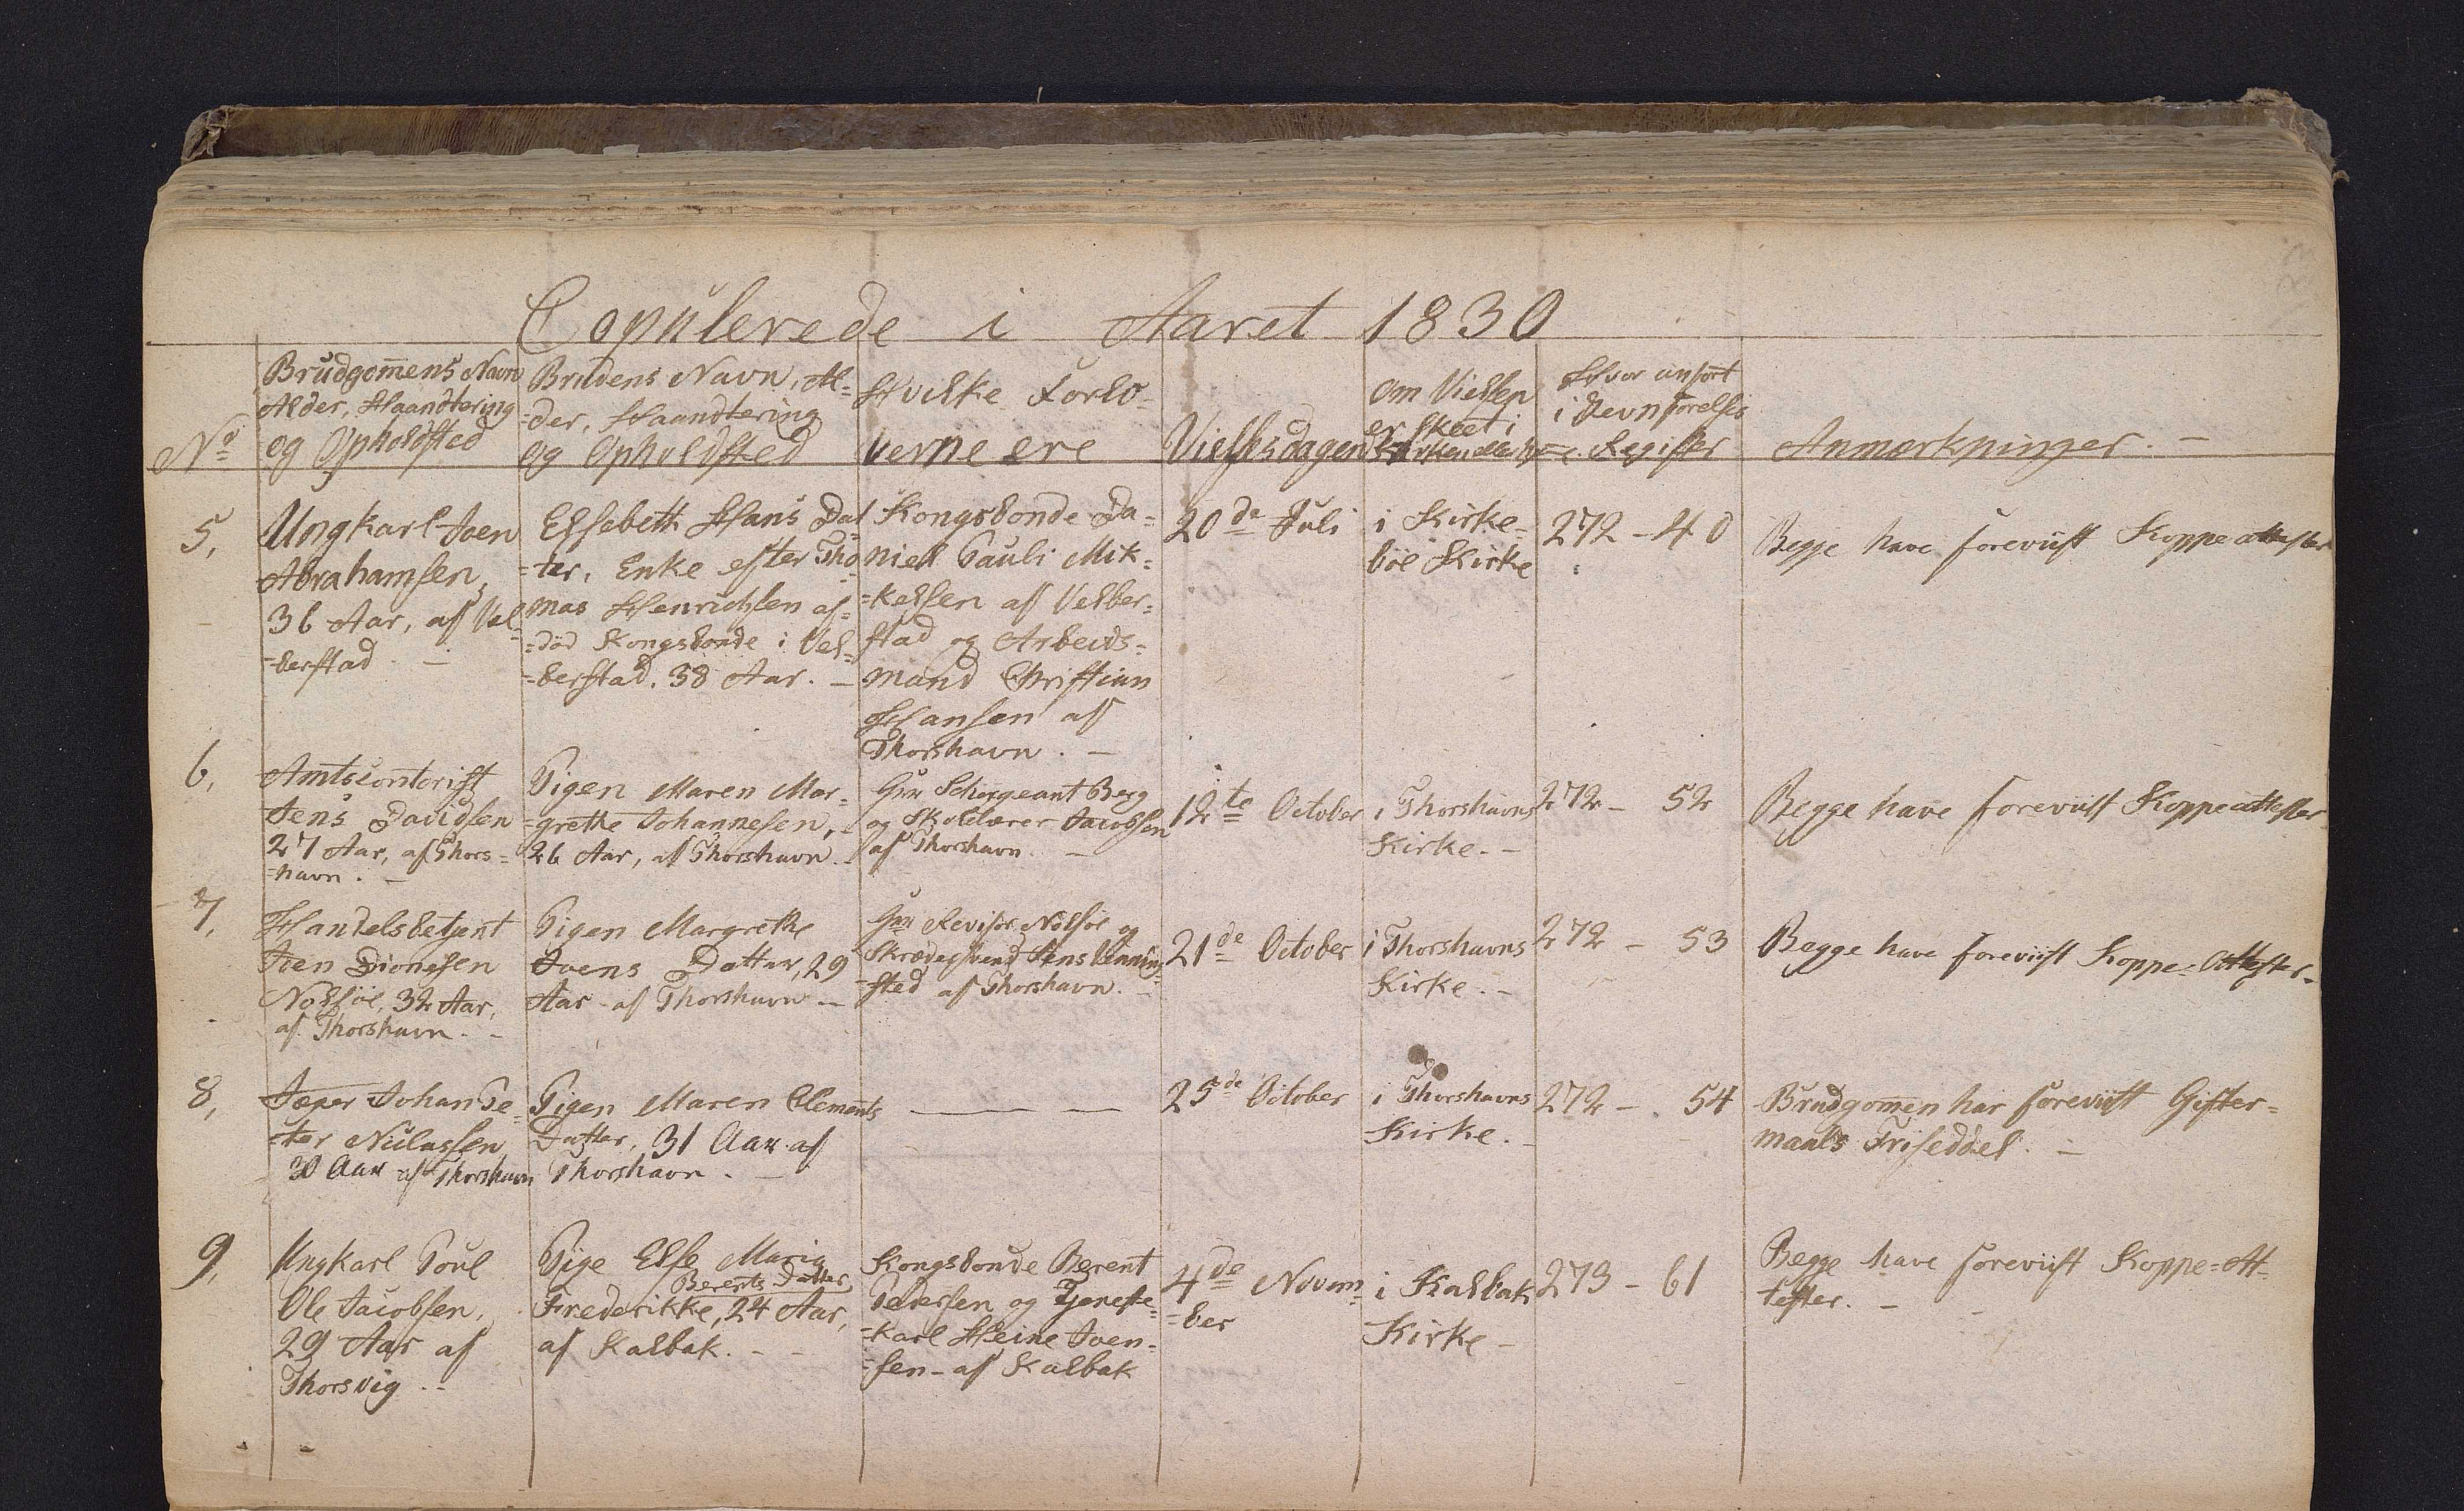 Copulerede i Aaret 1830
No
Brudgom̄ens Navn
Alder, Haandtering
og Opholdsted
Brudens Navn, Al-
-der, Haandtering
og Opholdsted
Hvilke Forlo-
verne ere
Vielsesdagen
Om Vielsen
er skeet i
Kirken eller
Hvor anført
i Jevnførelses
Register
Anmærkninger. -
5,
Ungkarl Joen
Abrahamsen,
36 Aar, af Vel-
-berstad. -
Elsebeth Hans Dat
-ter, Enke efter Tho-
mas Henrichsen af-
-død Kongsbonde i Vel-
-berstad. 38 Aar. -
Kongsbonde Da-
niell Pauli Mik-
-kelsen af Velber-
stad og Arbeids-
mand Christian
Hansen af
Thorshavn. -
20de Juli
i Kirke-
böe Kirke
272 - 40
Begge have foreviist Koppeattester
6,
Amtscontorist
Jens Davidsen
27 Aar, af Thors-
-havn. -
Pigen Maren Mar-
-grethe Johannesen,
26 Aar, af Thorshavn. -
Hrr Schergeant Berg
og Skolelærer Jacobsen
af Thorshavn. -
12te October
i Thorshavns
Kirke. -
272 - 52
Begge have foreviist Koppeattester
7,
Handelsbetjent
Joen Dionesen
Nolsöe, 32 Aar,
af Thorshavn. -
Pigen Margrethe
Joens Datter, 29
Aar af Thorshavn -
Hrr Revisor Nolsöe og
Skrædersvend Jens Vennin-
-sted af Thorshavn. -
21de October
i Thorshavns
Kirke. -
272 - 53
Begge have foreviist Koppe-Attester.
8,
Jæger Johan Pe-
-ter Niclassen
30 Aar af Thorshavn
Pigen Maren Clements
Datter, 31 Aar af
Thorshavn. -
— — —
25de October
i Thorshavns
Kirke. -
272 - 54
Brudgom̄en har foreviist Gifter-
maals Friseddel. -
9,
Ungkarl Poul
Ole Jacobsen,
29 Aar af
Thorsvig. -
Pige Else Maria
Berents Datter
Frederikke, 24 Aar,
af Kalbak. - -
Kongsbonde Berent
Pedersen og Tjeneste-
-karl Heine Joen-
-sen - af Kalbak
4de Novem-
-ber
i Kalbak
Kirke -
273 - 61
Begge have foreviist Koppe-At-
tester. -